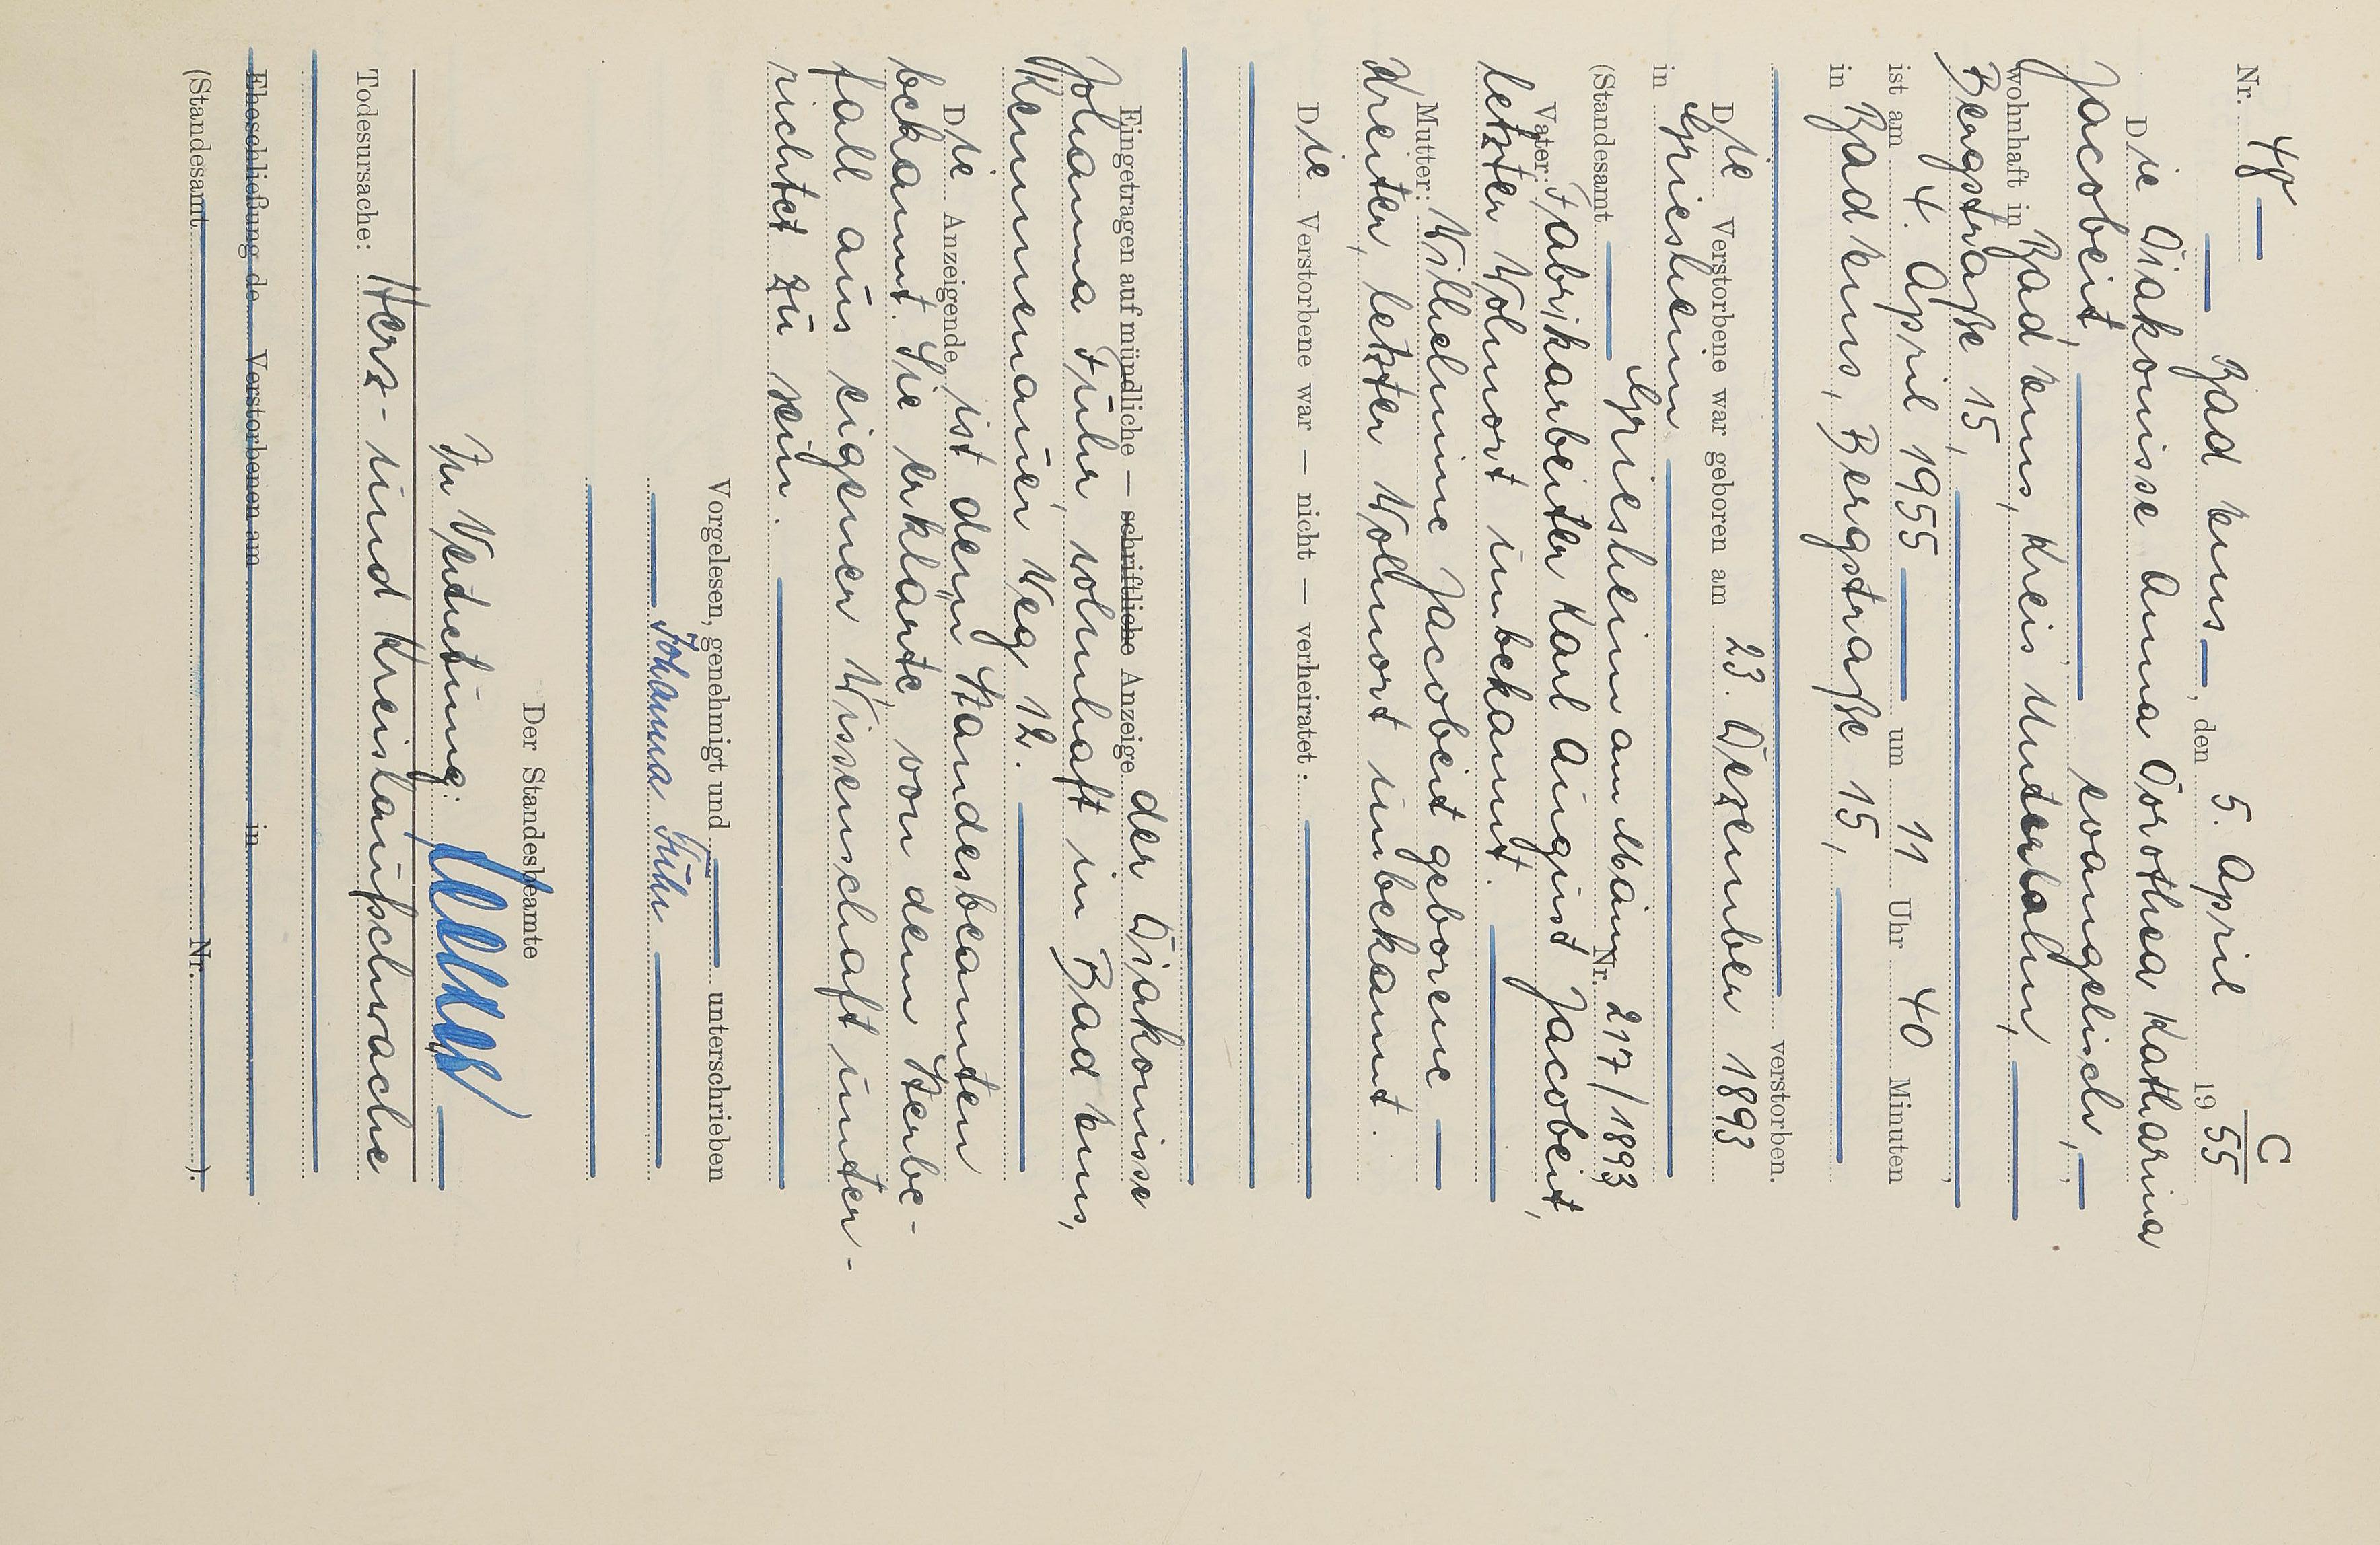 C
Nr. 48
Bad Ems, den 5. April 1955
Die Diakonisse Anna Dorothea Katharina
Jacobeit, evangelisch,
wohnhaft in Bad Ems, Kreis Unterlahn,
Bergstraße 15,
ist am 4. April 1955 um 11 Uhr 40 Minuten
in Bad Ems, Bergstraße 15, verstorben.
Die Verstorbene war geboren am 23. Dezember 1893
in Griesheim
(Standesamt Griesheim am Main Nr. 217/1893)
Vater: Fabrikarbeiter Karl August Jacobeit,
letzter Wohnort unbekannt.
Mutter: Wilhelmine Jacobeit geborene
Dreuter, letzter Wohnort unbekannt.
Die Verstorbene war — nicht — verheiratet.
Eingetragen auf mündliche — schriftliche Anzeige der Diakonisse
Johanna Führ, wohnhaft in Bad Ems,
Kemmenauer Weg 12.
Die Anzeigende ist dem Standesbeamten
bekannt. Sie erklärte, von dem Sterbe-
fall aus eigener Wissenschaft unter-
richtet zu sein.
Vorgelesen, genehmigt und unterschrieben
Johanna Führ
Der Standesbeamte
In Vertretung:
Todesursache: Herz- und Kreislaufschwäche
Eheschließung de Verstorbenen am in
(Standesamt Nr. ).